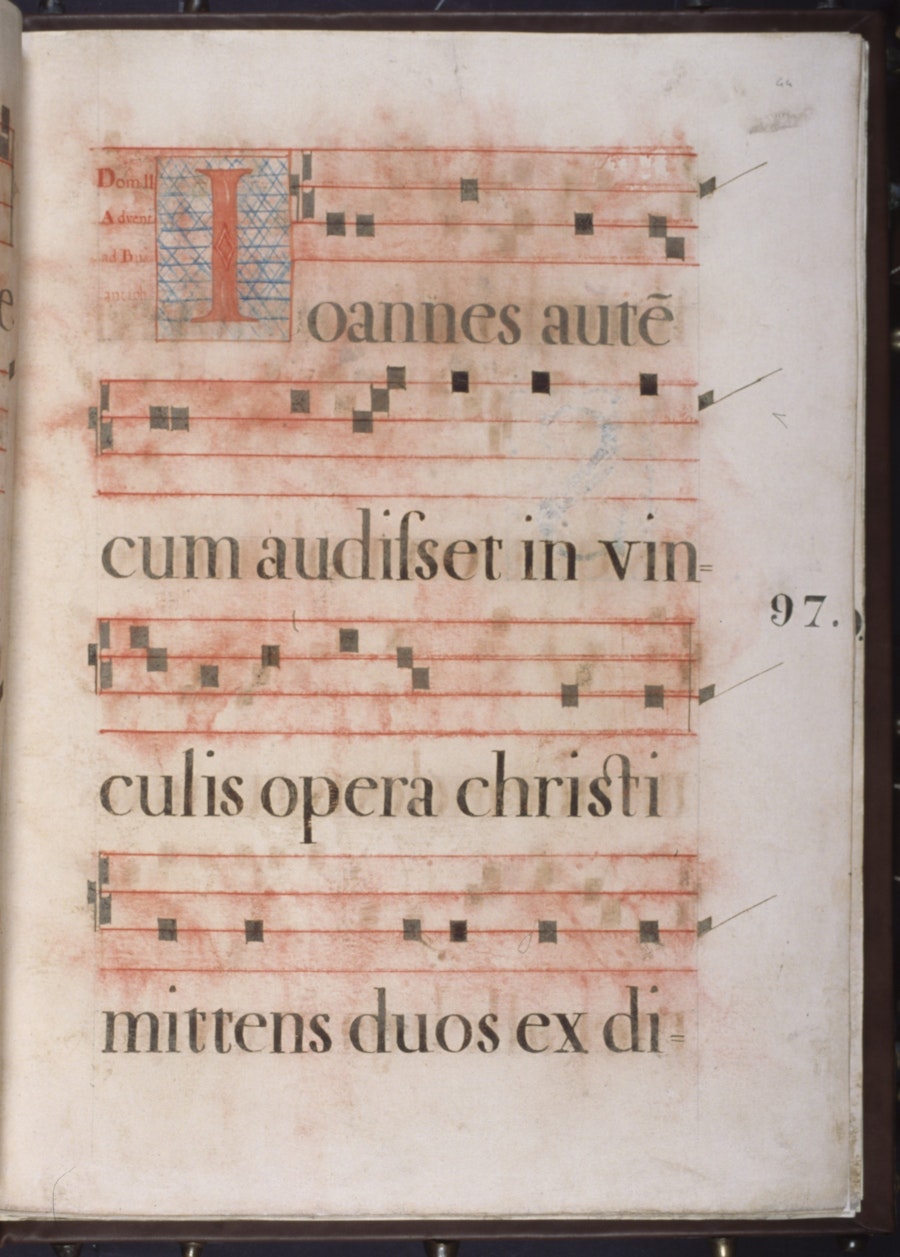 44
Dom II
Advent.
ad B
I
oannes autē
cum audiſset in vin=
97.
culis opera christi
mittens duos ex di=